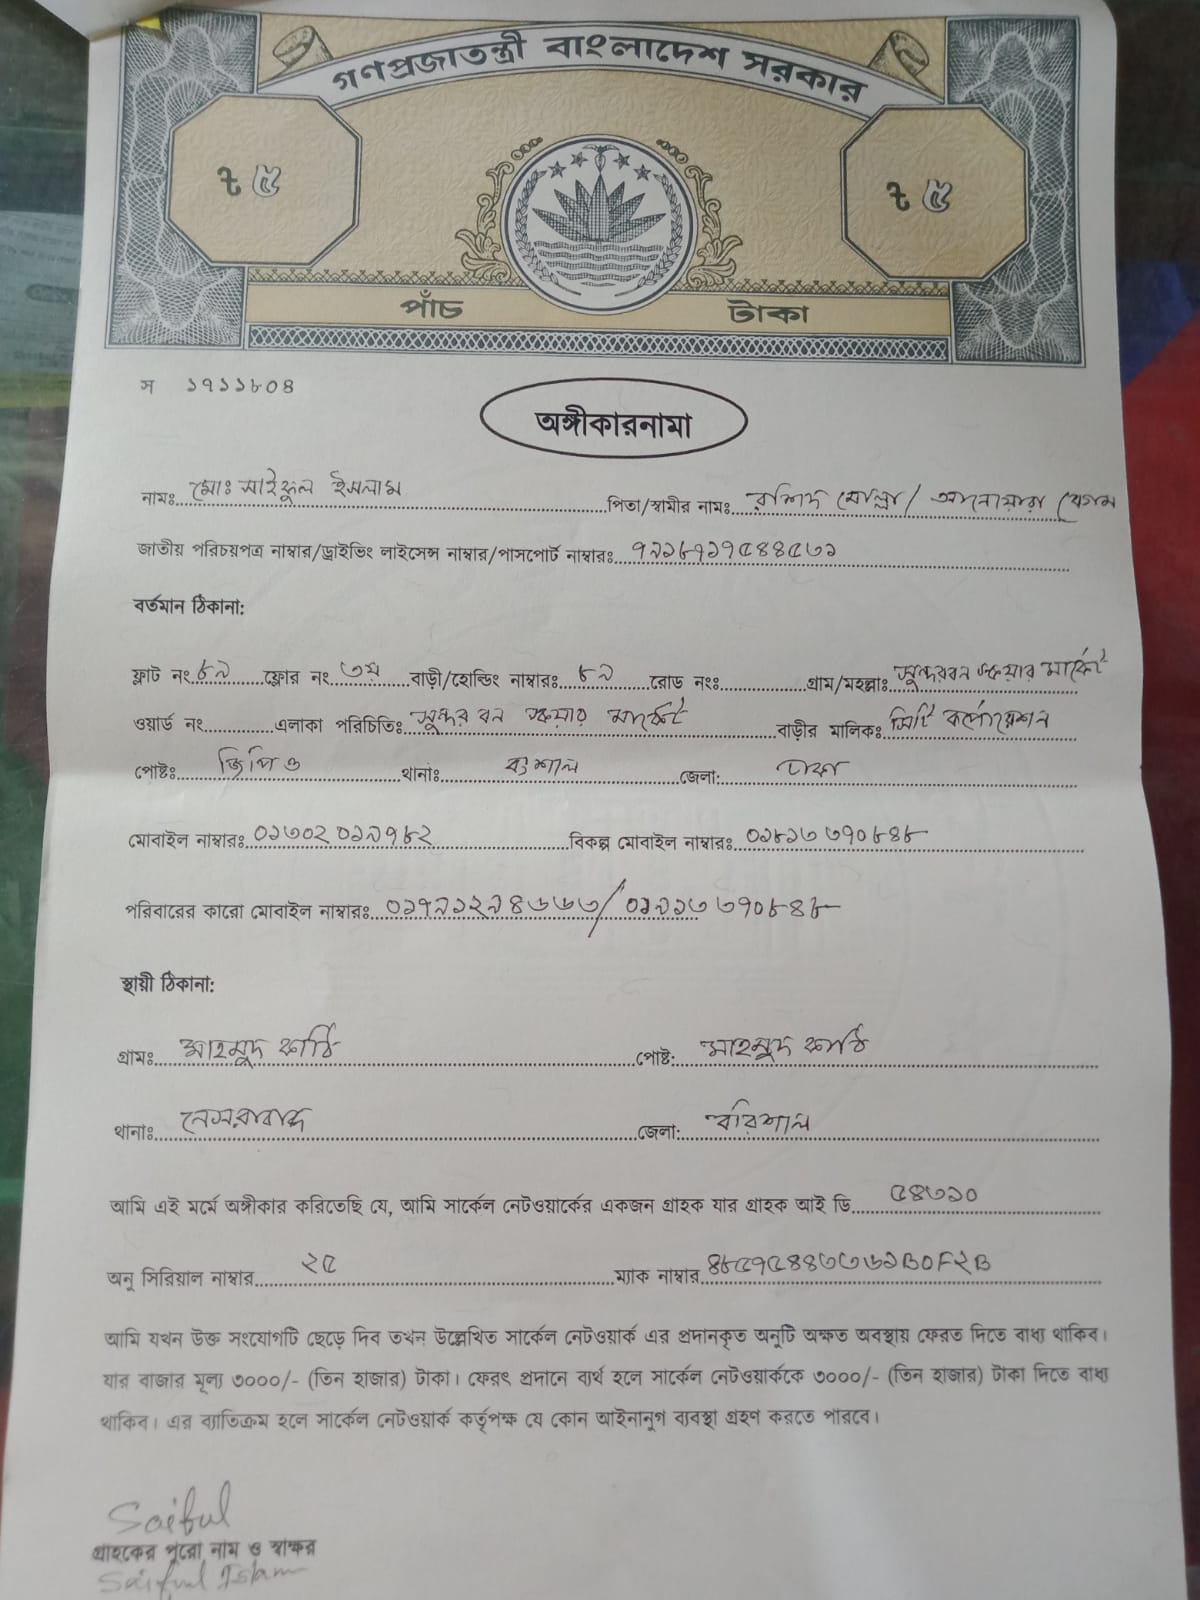 গণপ্রজাতন্ত্রী বাংলাদেশ সরকার
৳ ৫ ৳ ৫
পাঁচ টাকা
স ১৭১১৮০৪
অঙ্গীকারনামা
নামঃ মোঃ সাইফুল ইসলাম পিতা/স্বামীর নামঃ রশিদ মোল্লা / আনোয়ারা বেগম
জাতীয় পরিচয়পত্র নাম্বার/ড্রাইভিং লাইসেন্স নাম্বার/পাসপোর্ট নাম্বারঃ ৭৯১৮৭১৭৫৪৪৫৩১
বর্তমান ঠিকানা:
ফ্লাট নং ৮৯ ফ্লোর নং ৩য় বাড়ী/হোল্ডিং নাম্বারঃ ৮৯ রোড নংঃ গ্রাম/মহল্লাঃ সুন্দরবন স্কয়ার মার্কেট
ওয়ার্ড নং এলাকা পরিচিতিঃ সুন্দরবন স্কয়ার মার্কেট বাড়ীর মালিকঃ সিটি কর্পোরেশন
পোষ্টঃ জিপিও থানাঃ বংশাল জেলা: ঢাকা
মোবাইল নাম্বারঃ ০১৩০২০১৯৭৮২ বিকল্প মোবাইল নাম্বারঃ ০১৮১৩৩৭০৮৪৮
পরিবারের কারো মোবাইল নাম্বারঃ ০১৭৯১২৯৪৬৬৩/০১৯১৩৩৭০৮৪৮
স্থায়ী ঠিকানা:
গ্রামঃ মাহমুদ কাঠি পোষ্ট: মাহমুদ কাঠি
থানাঃ নেসরাবাদ জেলা: বরিশাল
আমি এই মর্মে অঙ্গীকার করিতেছি যে, আমি সার্কেল নেটওয়ার্কের একজন গ্রাহক যার গ্রাহক আই ডি ৫৪৩১০
অনু সিরিয়াল নাম্বার ২৫ ম্যাক নাম্বার ৪৮৫৭৫৪৪৩৩৬১B০F২B
আমি যখন উক্ত সংযোগটি ছেড়ে দিব তখন উল্লেখিত সার্কেল নেটওয়ার্ক এর প্রদানকৃত অনুটি অক্ষত অবস্থায় ফেরত দিতে বাধ্য থাকিব।
যার বাজার মূল্য ৩০০০/- (তিন হাজার) টাকা। ফেরৎ প্রদানে ব্যর্থ হলে সার্কেল নেটওয়ার্ককে ৩০০০/- (তিন হাজার) টাকা দিতে বাধ্য
থাকিব। এর ব্যাতিক্রম হলে সার্কেল নেটওয়ার্ক কর্তৃপক্ষ যে কোন আইনানুগ ব্যবস্থা গ্রহণ করতে পারবে।
Saiful
গ্রাহকের পুরো নাম ও স্বাক্ষর
Saiful Islam